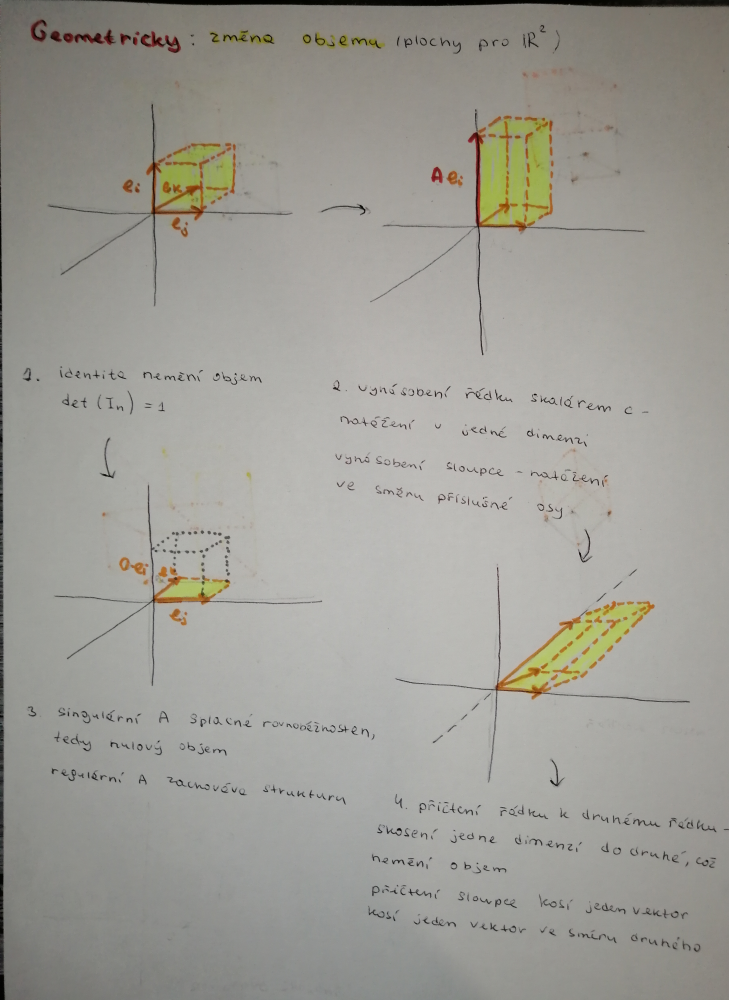 Geometricky: změna objemu (plochy pro ℝ²)
ei ek
ej
A ei
1. identita nemění objem
det (In) = 1
2. vynásobení řádku skalárem c -
natážení v jedné dimenzi
vynásobení sloupce - natážení
ve směru příslušné osy
0·ei ek
ej
3. singulární A splacné rovnoběžnosten,
tedy nulový objem
regulární A zachovává strukturu
4. přičtení řádku k druhému řádku -
skosení jedne dimenzí do druhé, což
nemění objem
přičtení sloupce kosí jeden vektor
kosí jeden vektor ve směru druhého